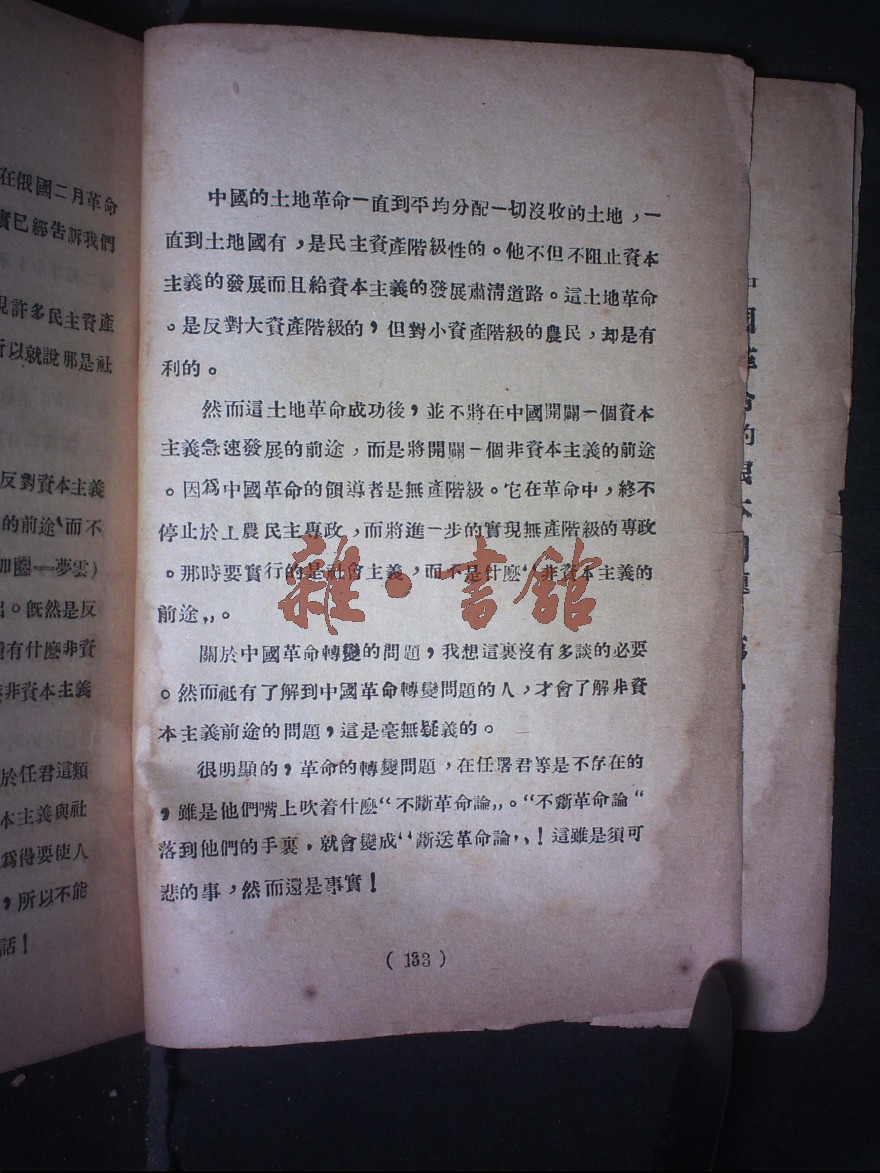 在俄國二月革命
實已經告訴我們
現許多民主資產
所以就說那是社
反對資本主義
的前途而不
加圈——夢雲）
出。既然是反
還有什麼非資
非資本主義
於任君這類
本主義與社
爲得要使人
，所以不能
話！
中國的土地革命一直到平均分配一切沒收的土地，一
直到土地國有，是民主資產階級性的。他不但不阻止資本
主義的發展而且給資本主義的發展肅清道路。這土地革命
。是反對大資產階級的，但對小資產階級的農民，却是有
利的。
然而這土地革命成功後，並不將在中國開闢一個資本
主義急速發展的前途，而是將開闢一個非資本主義的前途
。因爲中國革命的領導者是無產階級。它在革命中，終不
停止於工農民主專政，而將進一步的實現無產階級的專政
。那時要實行的是社會主義，而不是什麼“非資本主義的
前途„。
關於中國革命轉變的問題，我想這裏沒有多談的必要
。然而祇有了解到中國革命轉變問題的人，才會了解非資
本主義前途的問題，這是毫無疑義的。
很明顯的，革命的轉變問題，在任曙君等是不存在的
，雖是他們嘴上吹着什麼“不斷革命論„。“不斷革命論“
落到他們的手裏，就會變成“斷送革命論„！這雖是須可
悲的事，然而還是事實！
（133）
雜·書館
國革命的根本問